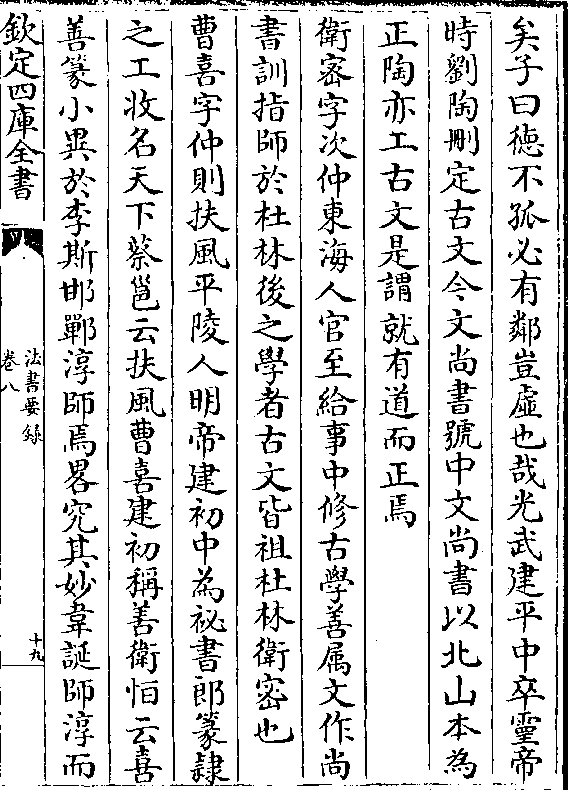 矣子曰徳不孤必有鄰豈虛也哉光武建平中卒靈帝
時劉陶刪定古文今文尚書號中文尚書以北山本為
正陶亦工古文是謂就有道而正焉
衛宻字次仲東海人官至給事中修古學善属文作尚
書訓指師於杜林後之學者古文皆祖杜林衛宻也
曹喜字仲則扶風平陵人明帝建初中為祕書郎篆隷
之工收名天下蔡邕云扶風曹喜建初稱善衛恒云喜
善篆小異於李斯邯鄲淳師焉畧究其妙韋誕師淳而
欽定四庫全書
法書要録
卷八
十九